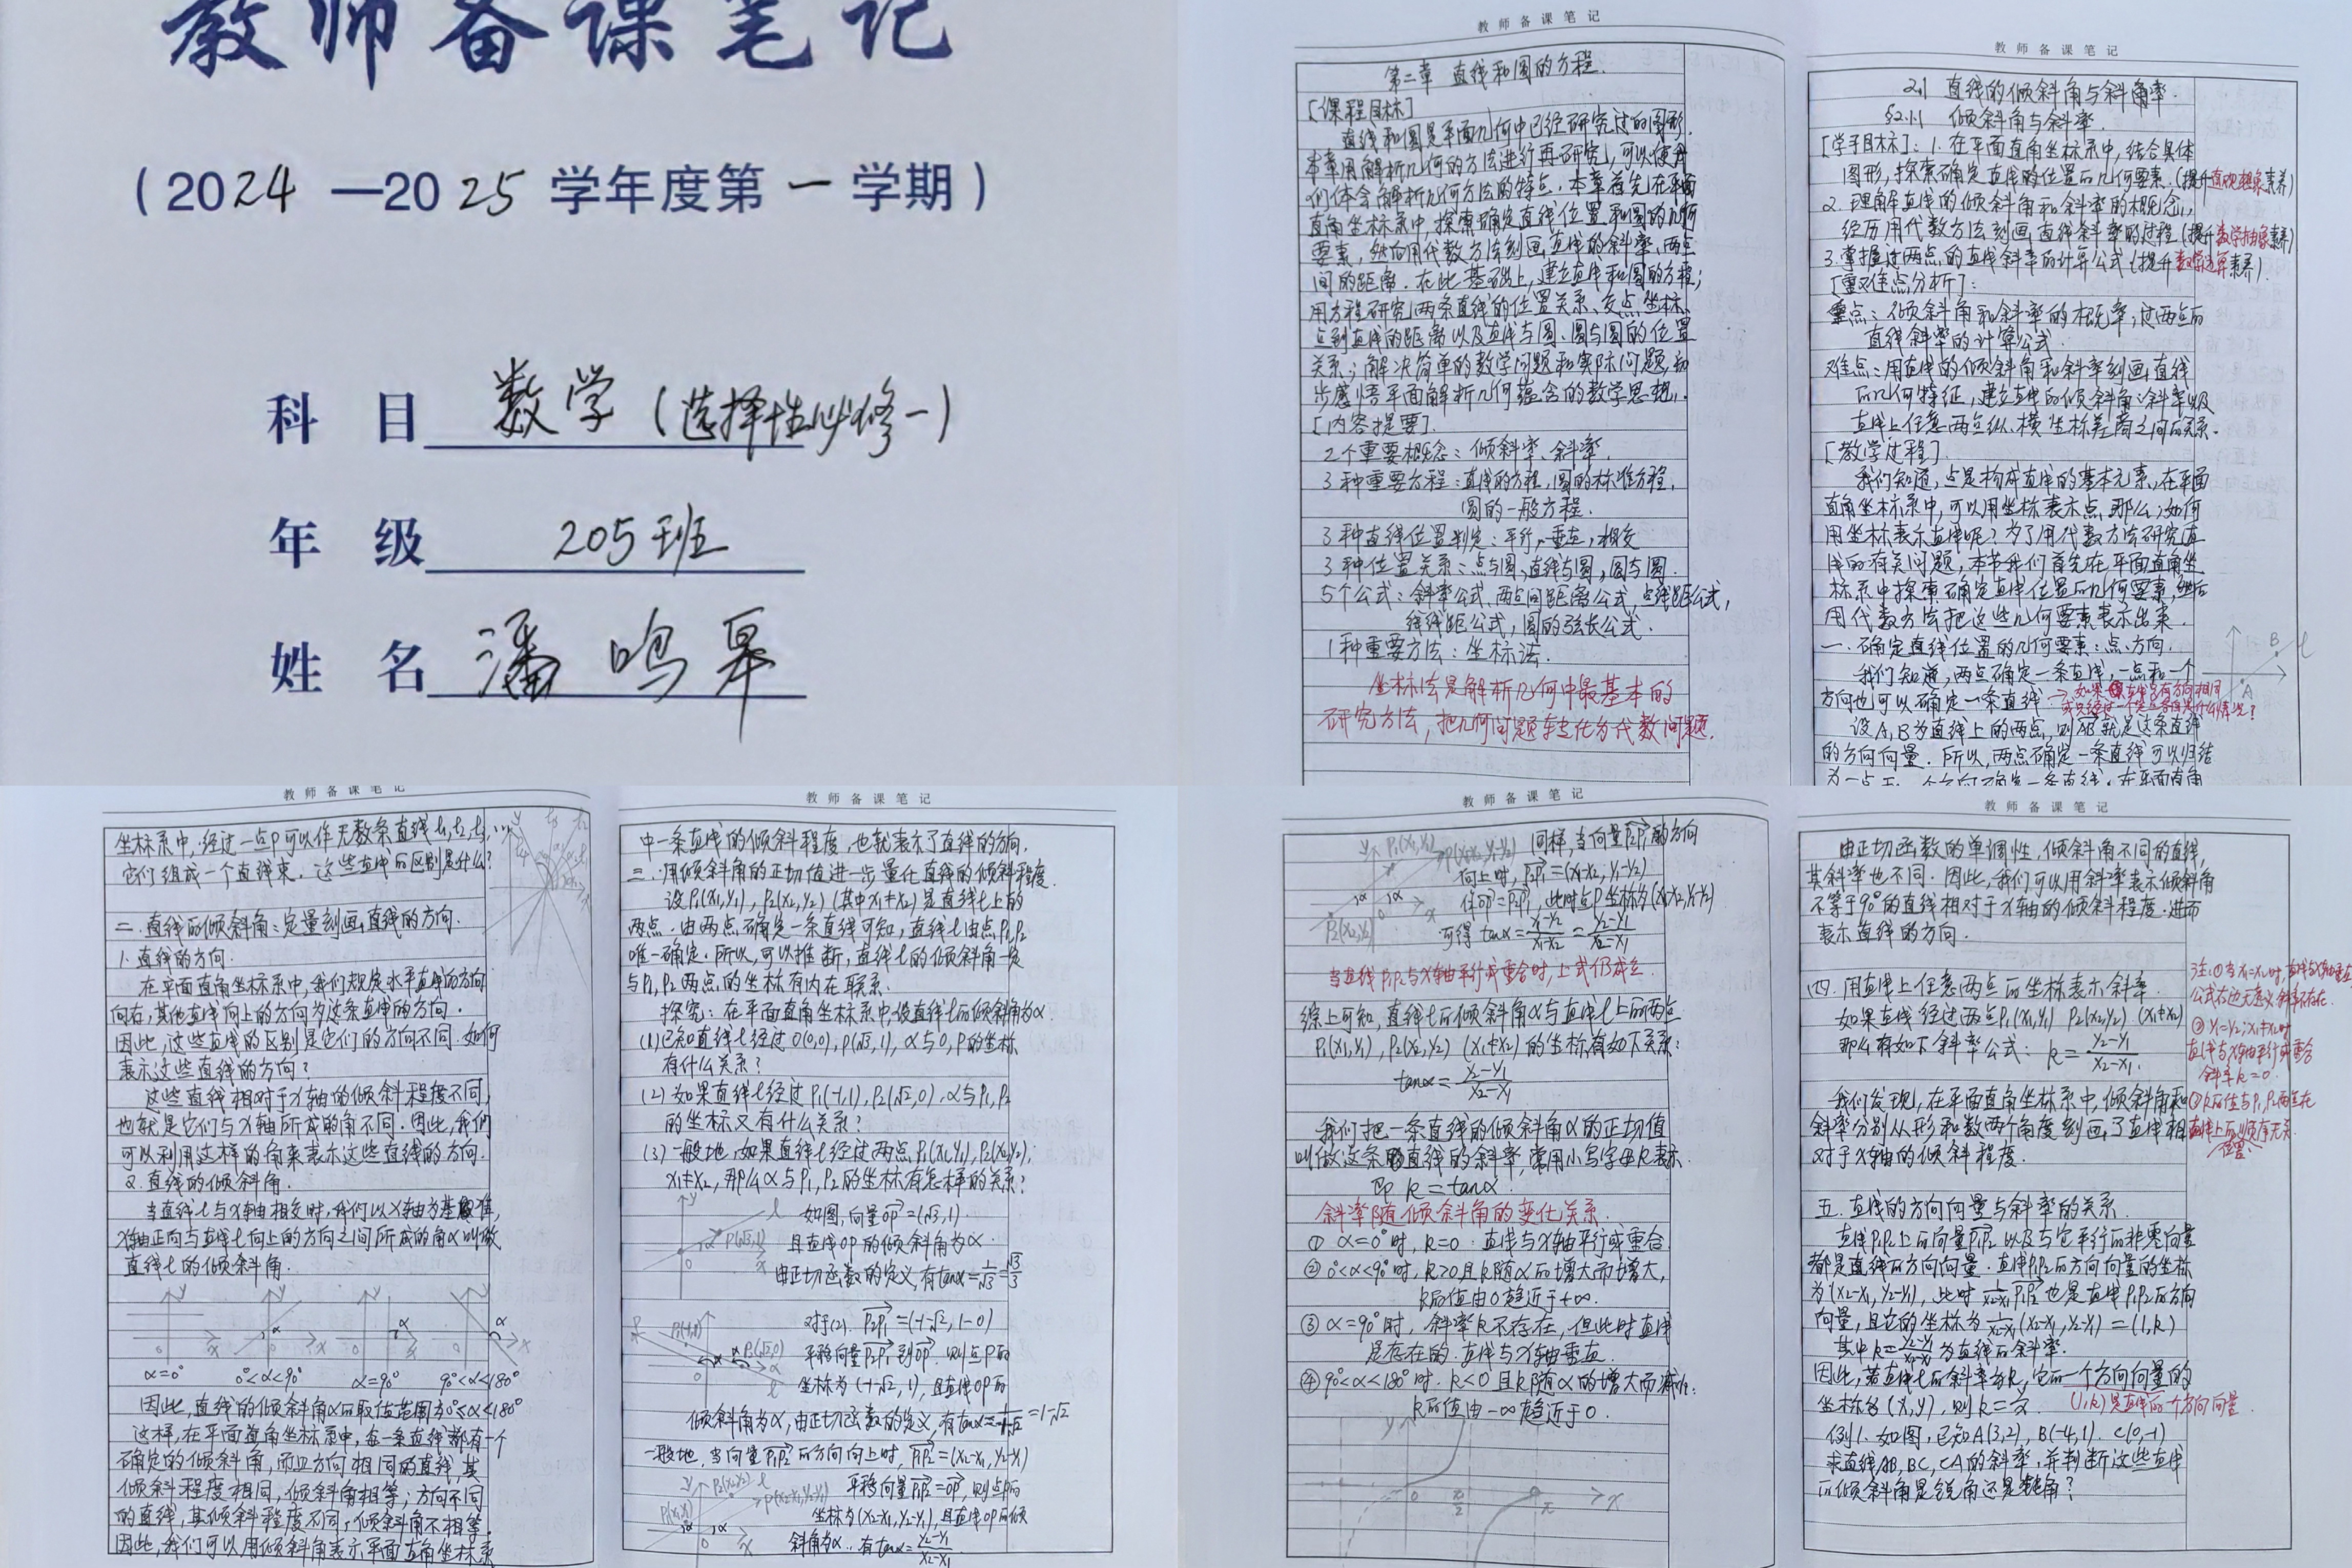 教师备课笔记
(2024—2025学年度第一学期)
科目 数学(选择性必修一)
年级 205班
姓名 潘鸣皋
教师备课笔记
第二章 直线和圆的方程.
[课程目标]
直线和圆是平面几何中已经研究过的图形.
本章用解析几何的方法进行再研究,可以使我
们体会解析几何方法的特点.本章首先在平面
直角坐标系中,探索确定直线位置和圆的几何
要素,然后用代数方法刻画直线的斜率、两点
间的距离.在此基础上,建立直线和圆的方程;
用方程研究两条直线的位置关系、交点坐标、
点到直线的距离以及直线与圆、圆与圆的位置
关系;解决简单的数学问题和实际问题,初
步感悟平面解析几何蕴含的数学思想.
[内容提要].
2个重要概念:倾斜率、斜率.
3种重要方程:直线的方程,圆的标准方程,
圆的一般方程.
3种直线位置判定:平行,垂直,相交
3种位置关系:点与圆,直线与圆,圆与圆.
5个公式:斜率公式、两点间距离公式,点线距公式,
线线距公式,圆的弦长公式.
1种重要方法:坐标法.
坐标法是解析几何中最基本的
研究方法,把几何问题转化为代数问题.
教师备课笔记
2.1 直线的倾斜角与斜率.
§2.1.1 倾斜角与斜率.
[学习目标]:1.在平面直角坐标系中,结合具体
图形,探索确定直线的位置的几何要素.(提升直观想象素养)
2.理解直线的倾斜角和斜率的概念,
经历用代数方法刻画直线斜率的过程(提升数学抽象素养)
3.掌握过两点的直线斜率的计算公式(提升数学运算素养).
[重难点分析]:
重点:倾斜角和斜率的概率,过两点的
直线斜率的计算公式.
难点:用直线的倾斜角和斜率刻画直线
的几何特征,建立直线的倾斜角、斜率以及
直线上任意两点纵、横坐标差商之间的关系.
[教学过程]
我们知道,点是构成直线的基本元素,在平面
直角坐标系中,可以用坐标表示点,那么,如何
用坐标表示直线呢?为了用代数方法研究直
线的有关问题,本节我们首先在平面直角坐
标系中探索确定直线位置的几何要素,然后
用代数方法把这些几何要素表示出来.
一.确定直线位置的几何要素:点、方向.
我们知道,两点确定一条直线,一点和一个
方向也可以确定一条直线
设A,B为直线上的两点,则AB就是这条直线
的方向向量.所以,两点确定一条直线可以归结
为一点与一个方向确定一条直线.在平面直角
B l
A
教师备课笔记
坐标系中,经过一点P可以作无数条直线l1,l2,l3,…
它们组成一个直线束.这些直线的区别是什么?
二.直线的倾斜角:定量刻画直线的方向.
1.直线的方向.
在平面直角坐标系中,我们规定水平直线的方向
向右,其他直线向上的方向为这条直线的方向.
因此,这些直线的区别是它们的方向不同.如何
表示这些直线的方向?
这些直线相对于x轴的倾斜程度不同,
也就是它们与x轴所成的角不同.因此,我们
可以利用这样的角来表示这些直线的方向.
2.直线的倾斜角.
当直线l与x轴相交时,我们以x轴为基准,
x轴正向与直线l向上的方向之间所成的角α叫做
直线l的倾斜角.
α=0° 0°<α<90° α=90° 90°<α<180°
因此,直线的倾斜角α的取值范围为0°≤α<180°
这样,在平面直角坐标系中,每一条直线都有一个
确定的倾斜角,而且方向相同的直线,其
倾斜程度相同,倾斜角相等;方向不同
的直线,其倾斜程度不同,倾斜角不相等.
因此,我们可以用倾斜角表示平面直角坐标系
教师备课笔记
中一条直线的倾斜程度,也就表示了直线的方向.
三.用倾斜角的正切值进一步量化直线的倾斜程度.
设P1(x1,y1),P2(x2,y2)(其中x1≠x2)是直线l上的
两点.由两点确定一条直线可知,直线l由点P1,P2
唯一确定.所以,可以推断,直线l的倾斜角一定
与P1,P2两点的坐标有内在联系.
探究:在平面直角坐标系中,设直线l的倾斜角为α
(1)已知直线l经过O(0,0),P(√3,1),α与O,P的坐标
有什么关系?
(2)如果直线l经过P1(-1,1),P2(√2,0).α与P1,P2
的坐标又有什么关系?
(3)一般地,如果直线l经过两点P1(x1,y1),P2(x2,y2);
x1≠x2,那么α与P1,P2的坐标有怎样的关系?
如图,向量OP=(√3,1)
且直线OP的倾斜角为α.
由正切函数的定义,有tanα=1/√3=√3/3
对于(2).P2P1=(-1-√2,1-0)
平移向量P2P1到OP.则点P的
坐标为(-1-√2,1),且直线OP的
倾斜角为α,由正切函数的定义,有tanα=1/(-1-√2)=1-√2
一般地,当向量P1P2的方向向上时,P1P2=(x2-x1,y2-y1)
平移向量P1P2=OP,则点P的
坐标为(x2-x1,y2-y1),且直线OP的倾
斜角为α.有tanα=(y2-y1)/(x2-x1)
教师备课笔记
同样,当向量P2P1的方向
向上时,P2P1=(x1-x2,y1-y2)
作OP=P2P1,此时点P坐标为(x1-x2,y1-y2)
可得tanα=(y1-y2)/(x1-x2)=(y2-y1)/(x2-x1)
当直线P1P2与x轴平行或重合时,上式仍成立.
综上可知,直线l的倾斜角α与直线l上的两点
P1(x1,y1),P2(x2,y2)(x1≠x2)的坐标有如下关系:
tanα=(y2-y1)/(x2-x1)
我们把一条直线的倾斜角α的正切值
叫做这条直线的斜率,常用小写字母k表示.
即k=tanα.
斜率随倾斜角的变化关系.
①α=0°时,k=0.直线与x轴平行或重合.
②0°<α<90°时,k>0且k随α的增大而增大,
k的值由0趋近于+∞.
③α=90°时,斜率k不存在,但此时直线
是存在的.直线与x轴垂直.
④90°<α<180°时.k<0且k随α的增大而增大:
k的值由-∞趋近于0.
教师备课笔记
由正切函数的单调性,倾斜角不同的直线,
其斜率也不同.因此,我们可以用斜率表示倾斜角
不等于90°的直线相对于x轴的倾斜程度.进而
表示直线的方向.
四.用直线上任意两点的坐标表示斜率.
如果直线经过两点P1(x1,y1) P2(x2,y2)(x1≠x2)
那么有如下斜率公式:k=(y2-y1)/(x2-x1).
注:①当x1=x2时,直线与x轴垂直
公式右边无意义,斜率不存在.
②y1=y2,x1≠x2时
直线与x轴平行或重合
斜率k=0.
③k的值与P1,P2两点在
直线上的顺序无关.
位置、
我们发现,在平面直角坐标系中,倾斜角和
斜率分别从形和数两个角度刻画了直线相
对于x轴的倾斜程度.
五.直线的方向向量与斜率的关系.
直线P1P2上的向量P1P2以及与它平行的非零向量
都是直线的方向向量.直线P1P2的方向向量的坐标
为(x2-x1,y2-y1),此时1/(x2-x1)P1P2也是直线P1P2的方向
向量,且它的坐标为1/(x2-x1)(x2-x1,y2-y1)=(1,k)
其中k=(y2-y1)/(x2-x1)为直线的斜率.
因此,若直线l的斜率为k,它的一个方向向量的
坐标为(x,y),则k=y/x. (1,k)是直线的一个方向向量.
例1.如图,已知A(3,2),B(-4,1).C(0,-1)
求直线AB,BC,CA的斜率,并判断这些直线
的倾斜角是锐角还是钝角?